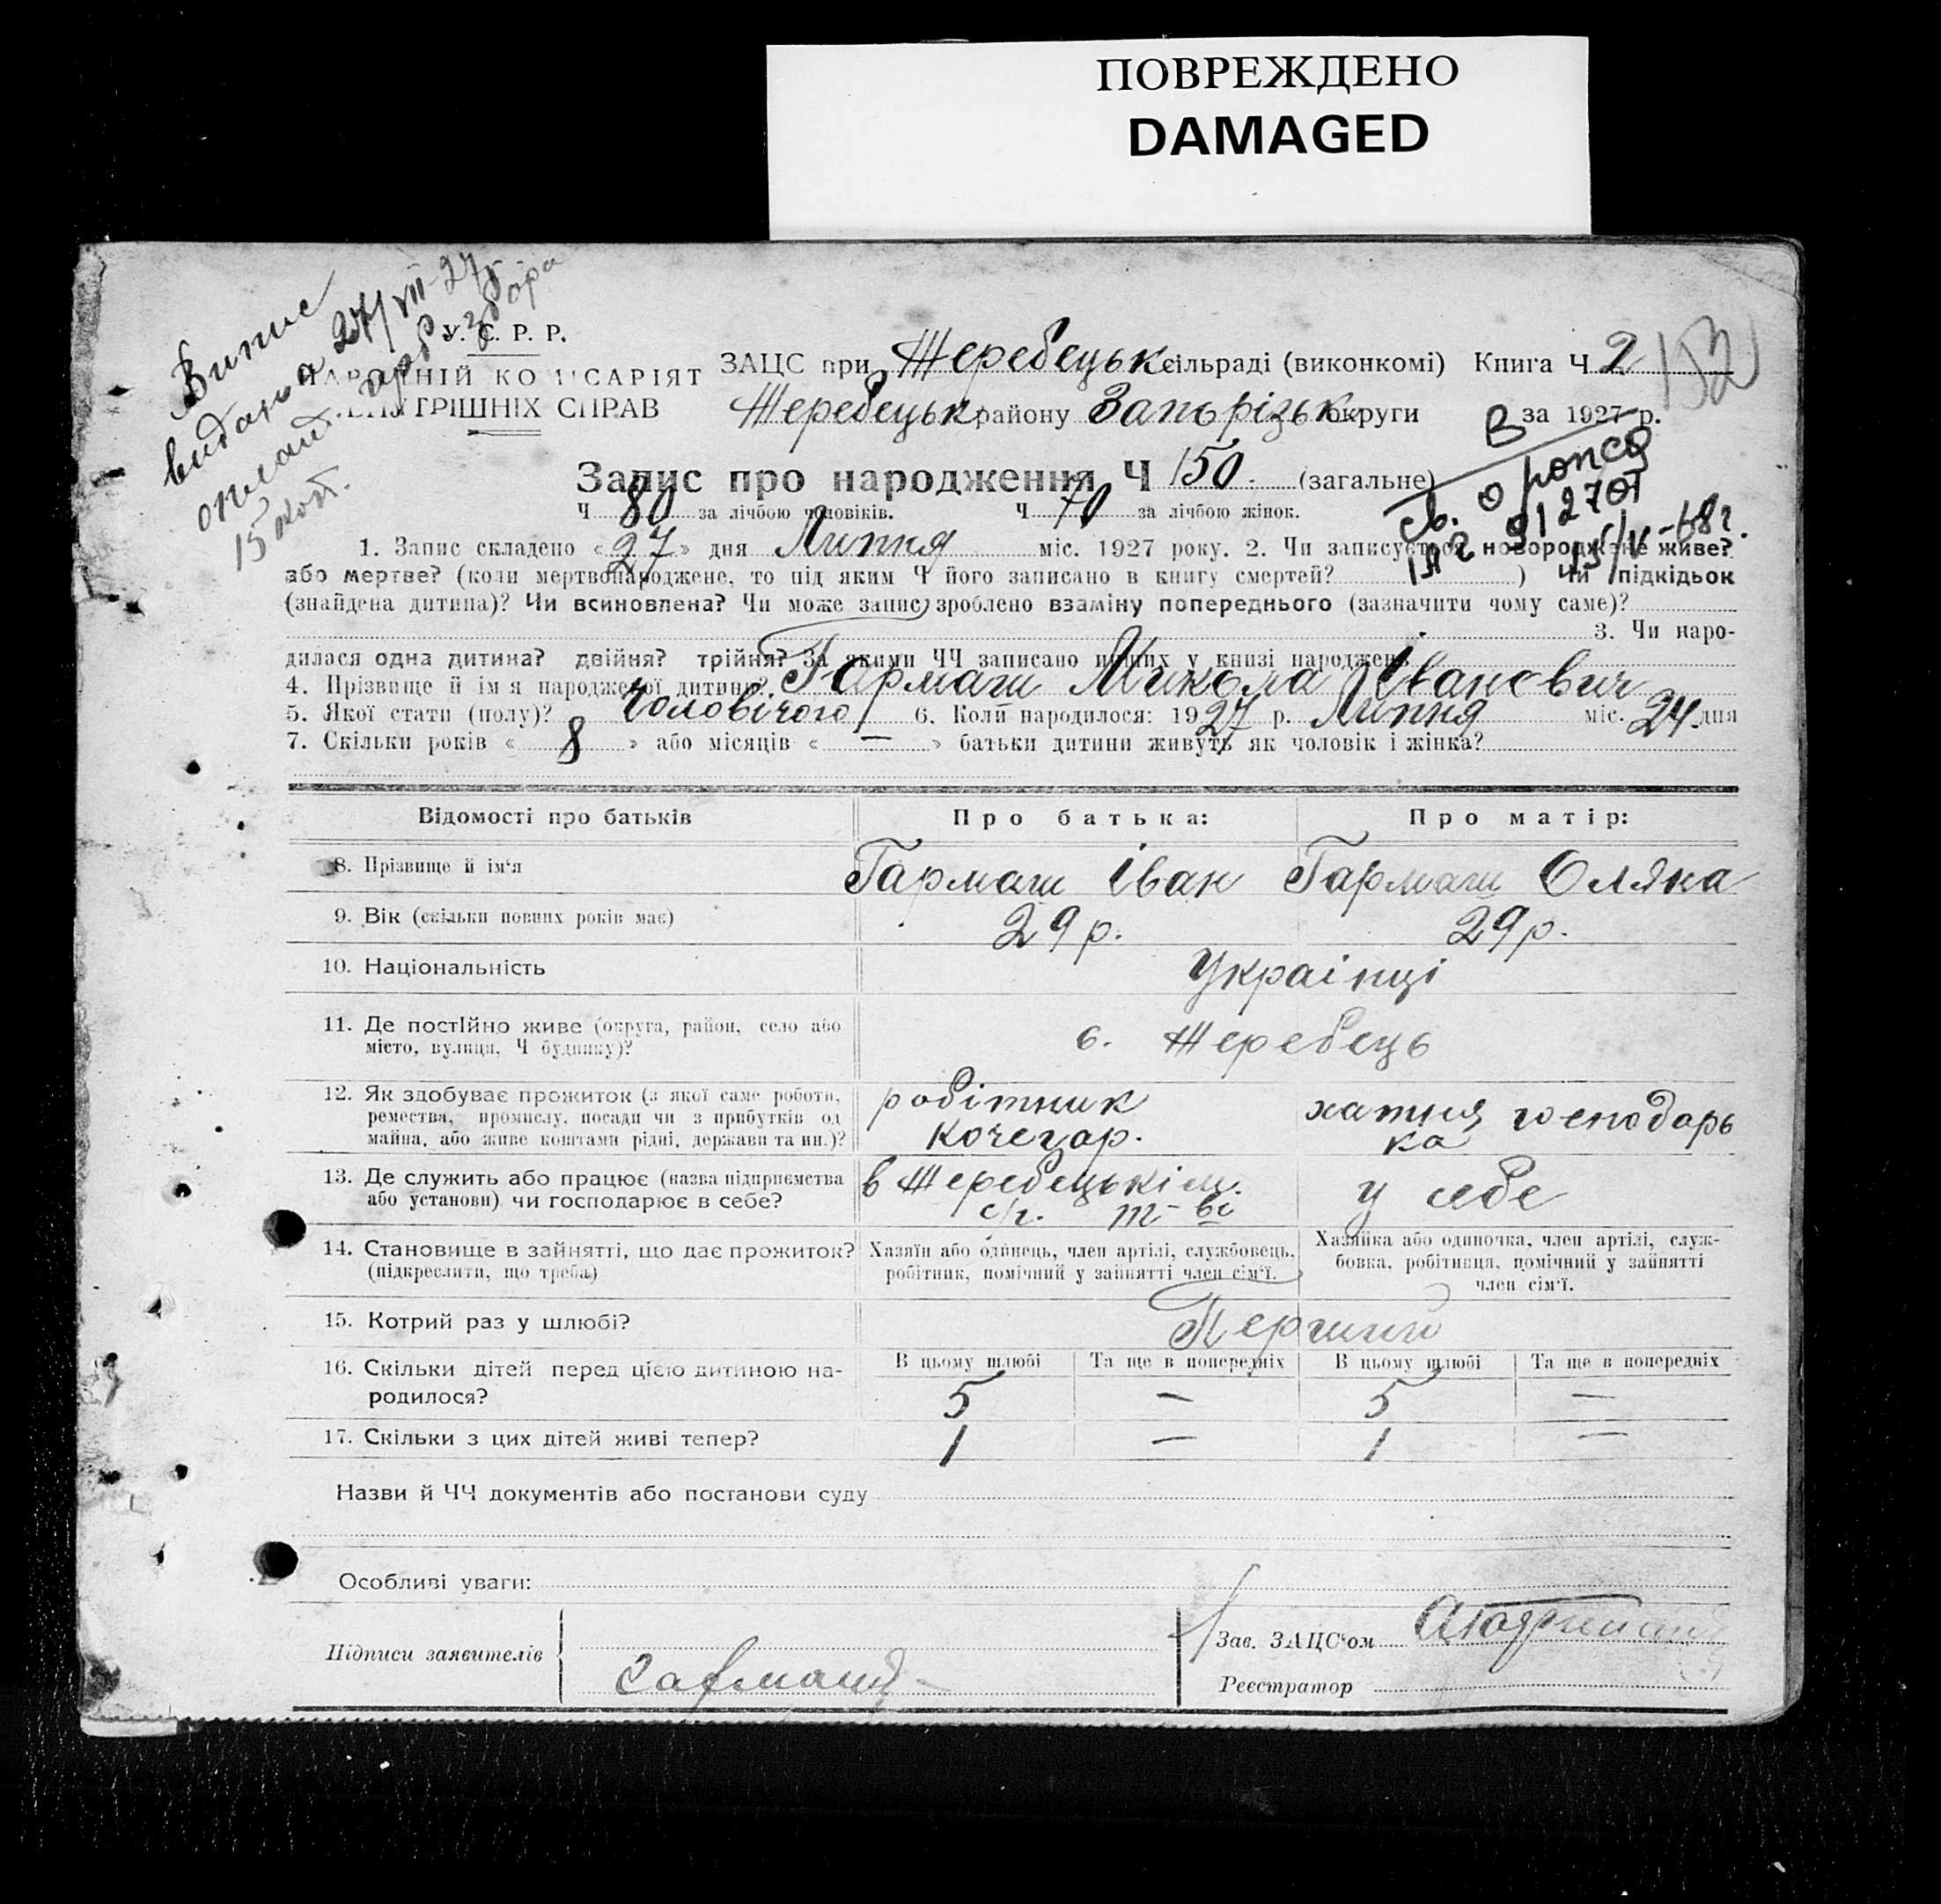 ПОВРЕЖДЕНО
DAMAGED
Випис
видана 27/VII-27р.
оплач. герб. збора
15 коп.
У. С. Р. Р.
НАРОДНІЙ КОМІСАРІЯТ
ВНУТРІШНІХ СПРАВ
ЗАЦС при Жеребецьк. сільраді (виконкомі) Книга Ч 2
152
Жеребецьк. району Запорізьк. округи за 1927 р.
Запис про народження Ч 150. (загальне)
Ч 80 за лічбою чоловіків. Ч 70 за лічбою жінок.
В
св. о рожд
91270
15/V-68г.
1. Запис складено «27» дня Липня міс. 1927 року. 2. Чи записується новороджене живе?
або мертве? (коли мертвонароджене, то під яким Ч його записано в книгу смертей? ) Чи підкідьок
(знайдена дитина)? Чи всиновлена? Чи може запис зроблено взаміну попереднього (зазначити чому саме)?
3. Чи наро-
дилася одна дитина? двійня? трійня? За якими ЧЧ записано инших у книзі народжень
4. Прізвище й ім'я народженої дитини? Гармаш Микола Іванович
5. Якої стати (полу)? Чоловічого 6. Коли народилося: 1927 р. Липня міс. 24. дня
7. Скільки років « 8 » або місяців « — » батьки дитини живуть як чоловік і жінка?
Відомості про батьків Про батька: Про матір:
8. Прізвище й ім'я Гармаш Іван Гармаш Оляна
9. Вік (скільки повних років має) 29 р. 29 р.
10. Національність Українці
11. Де постІйно живе (округа, район, село або
місто, вулиця, Ч будинку)? с. Жеребець
12. Як здобуває прожиток (з якої саме роботи,
ремества, промислу, посади чи з прибутків од
майна, або живе коштами рідні, держави та ин.)?
робітник
кочегар.
хатня господарь
ка
13. Де служить або працює (назва підприємства
або установи) чи господарює в себе?
в Жеребецькім.
с/г. т-ві
у себе
14. Становище в зайнятті, що дає прожиток?
(підкреслити, що треба)
Хазяїн або одинець, член артілі, службовець,
робітник, помічний у зайнятті член сім'ї.
Хазяйка або одиночка, член артілі, служ-
бовка, робітниця, помічний у зайнятті
член сім'ї.
15. Котрий раз у шлюбі? Перший
16. Скільки дітей перед цією дитиною на-
родилося?
В цьому шлюбі Та ще в попередніх В цьому шлюбі Та ще в попередніх
5 — 5 —
17. Скільки з цих дітей живі тепер? 1 — 1 —
Назви й ЧЧ документів або постанови суду
Особливі уваги:
Підписи заявителів Гармаш
Зав. ЗАЦС'ом
Реєстратор